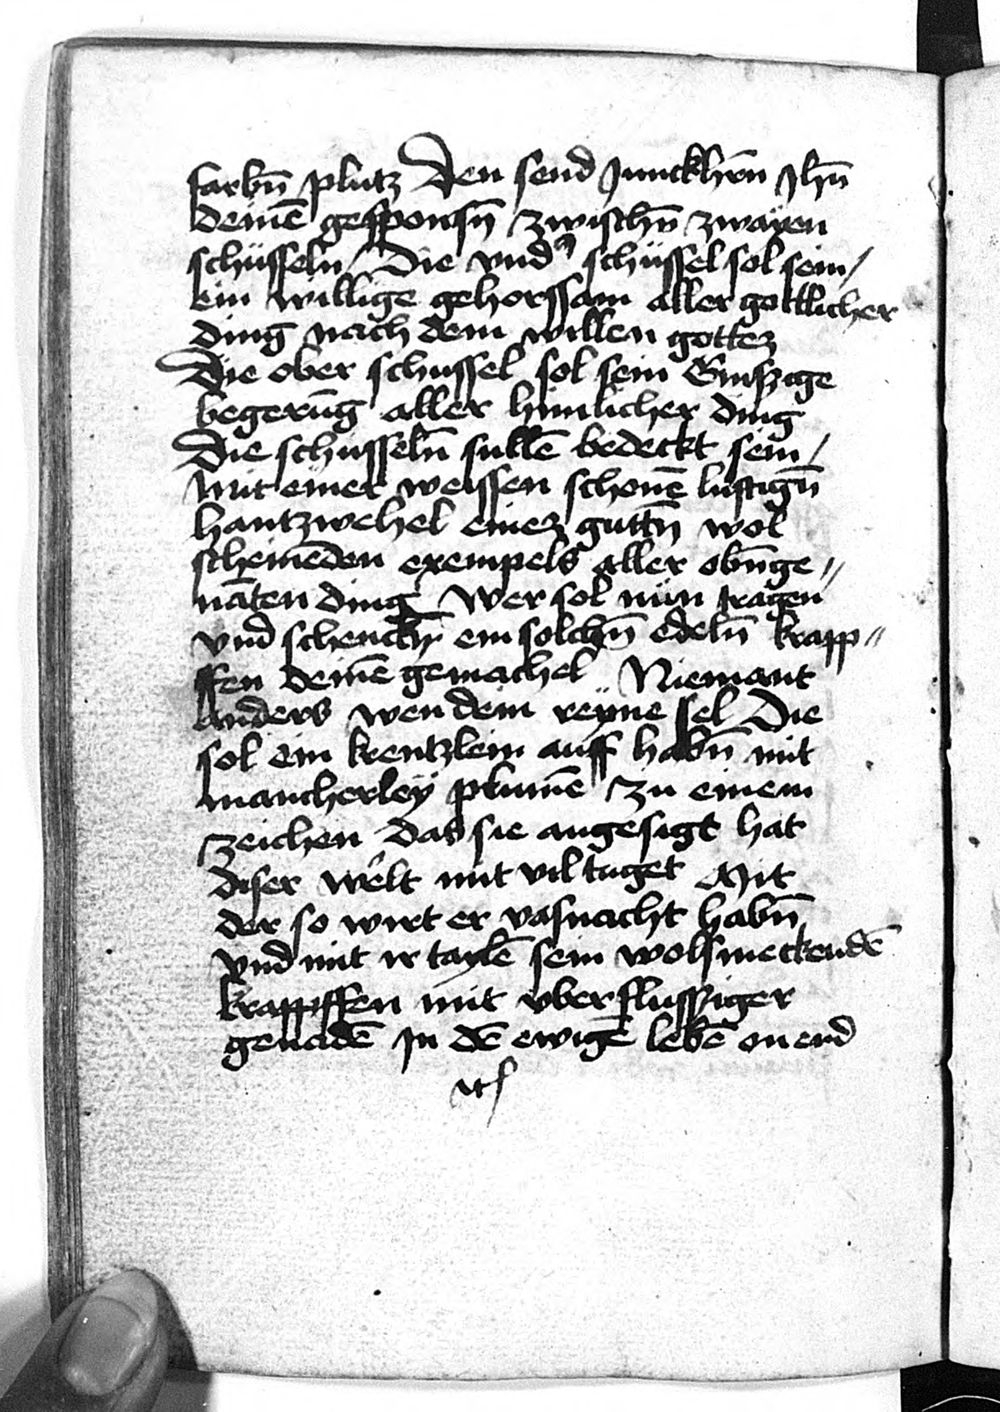 farbn̄ plutz Den send Junckhern̄ Jhn̄
deinē gesponsn̄ zwischn̄ zwayen
schüsseln / Die vnd' schüssel sol sein /
ein willige gehorssam aller gottlicher
ding nach dem willen gottez
Die ober schussel sol sein
begerūg aller himlicher ding
Die schusseln̄ sullē bedeckt sein /
mit einer weissen schonē lustign̄
hantzwehel einez guttn̄ wol
scheinēden exempels aller obn̄ge //
nāten ding Wer sol nün tragen
vnd schenckn̄ ein solchn̄ edeln̄ krapp //
ffen deinē gemachel Niemant
anders wen dein reyne sel Die
sol ein krentzlein auff habn̄ mit
mancherley plumē zu einem
zeichen das sie angesigt hat
diser welt mit vil tuget Mit
der so wirt er vasnacht habn̄
vnd mit ir taylē sein wolsmeckendē
krappffen mit vberflussziger
genadē In dē ewigē lebē on end